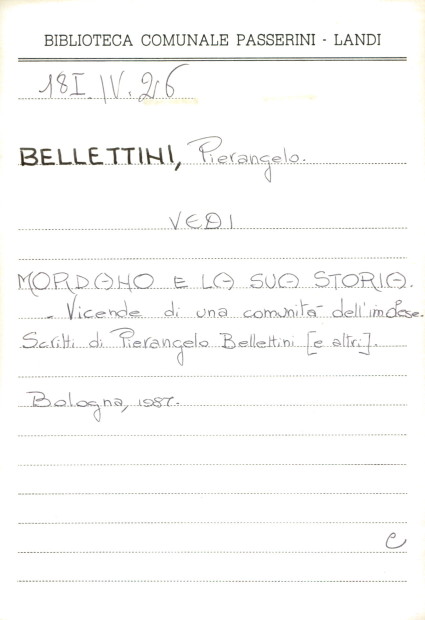 BIBLIOTECA COMUNALE PASSERINI - LANDI
18I.IV.26
BELLETTINI, Pierangelo.
VEDI
MORDANO E LA SUA STORIA.
- Vicende di una comunità dell'imolese.
Scritti di Pierangelo Bellettini [e altri].
Bologna, 1987.
C